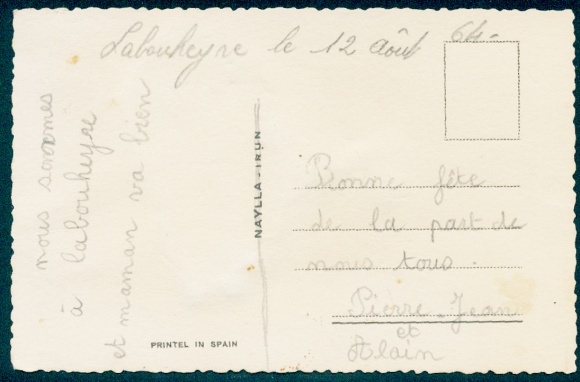 Labouheyre le 12 Août 64-
nous sommes
à labouheyre
et maman va bien
NAYLLA-IRUN
Bonne fête
de la part de
nous tous.
Pierre-Jean
et
Alain
PRINTEL IN SPAIN